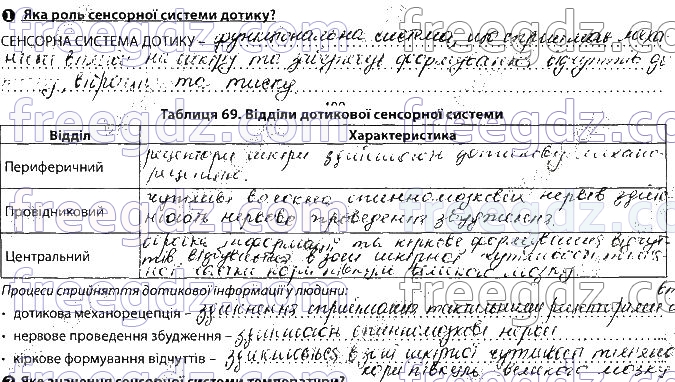 1 Яка роль сенсорної системи дотику?
СЕНСОРНА СИСТЕМА ДОТИКУ – функціональна система, що сприймає
вплив на шкіру та забезпечує формування відчуттів
вібрації та тиску
Таблиця 69. Відділи дотикової сенсорної системи
Відділ Характеристика
Периферичний рецептори шкіри здійснюють дотикову механо-
рецепцію.
Провідниковий чутливі волокна спинномозкових нервів здійс-
нюють нервове проведення збудження.
Центральний обробка інформації та кіркове формування відчут-
тів відбувається в зоні шкірної чутливості
кори півкуль великого мозку.
Процеси сприйняття дотикової інформації у людини:
• дотикова механорецепція – здійснення сприймання тактильними рецепторами
• нервове проведення збудження – здійснюють спинномозкові нерви
• кіркове формування відчуттів – здійснюється в зоні шкірної чутливості
кори півкуль великого мозку
Яке значення сенсорної системи температури?
freegdz.com